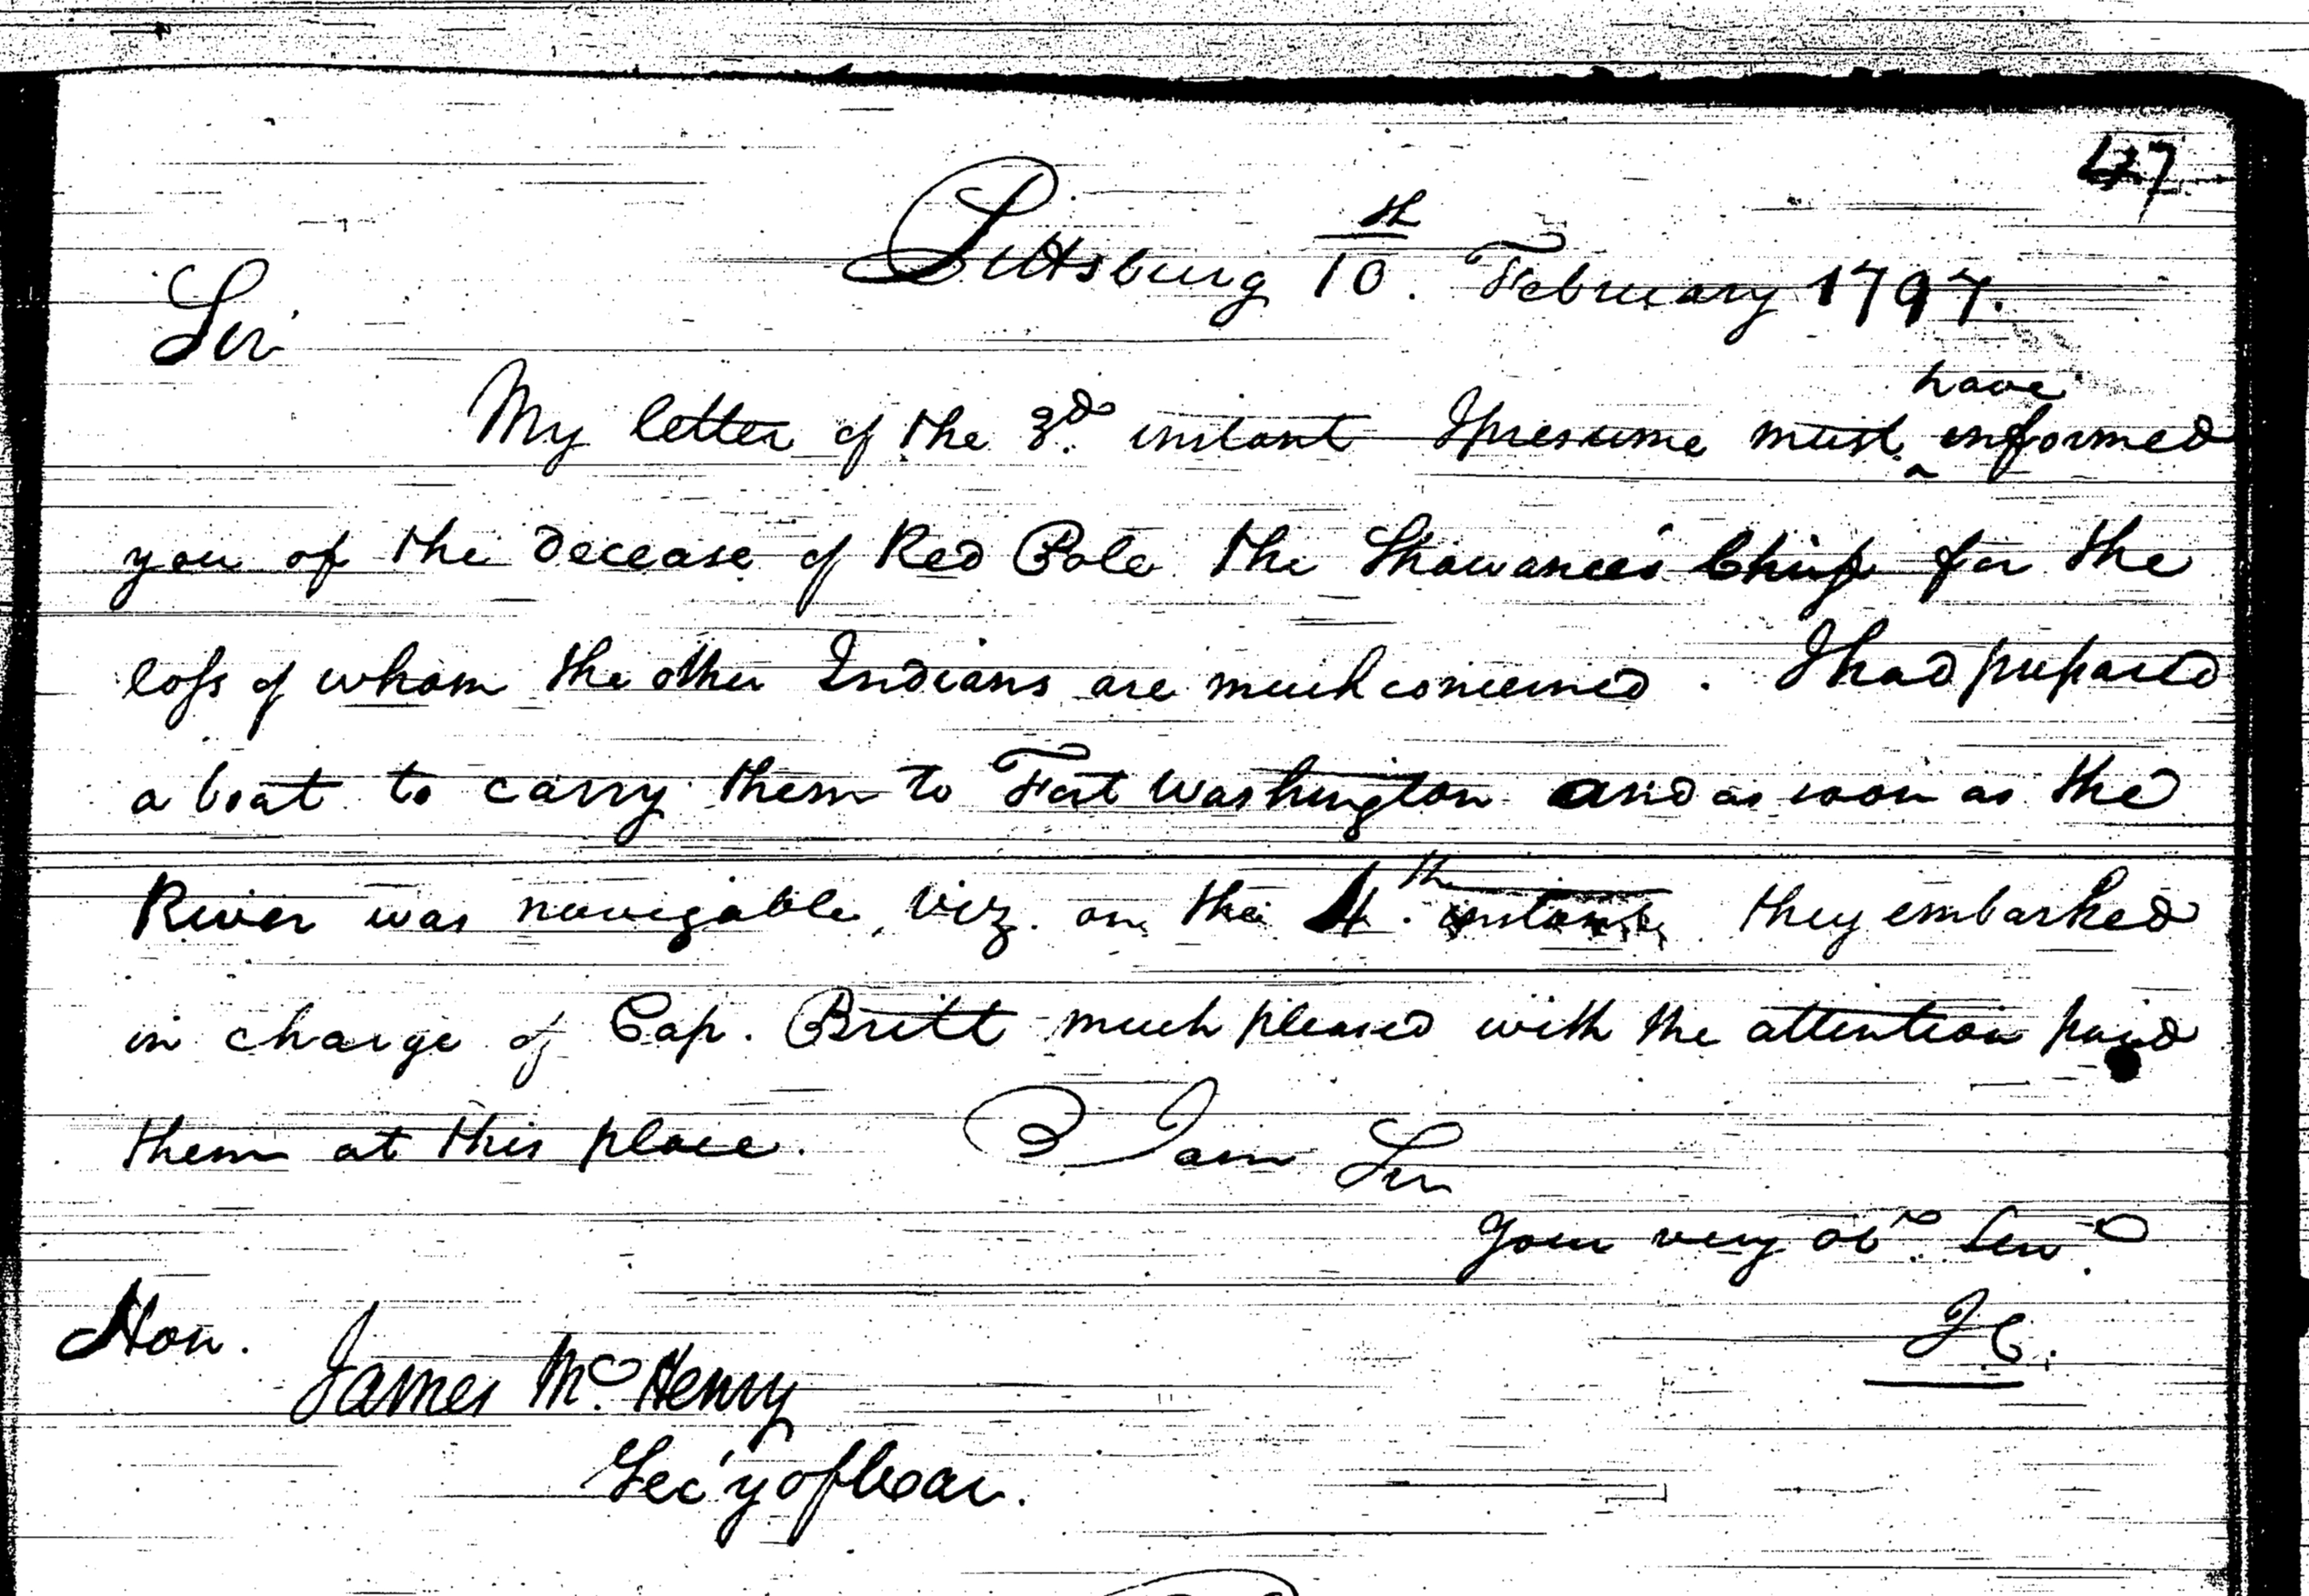 47
Pittsburg 10th. February 1797.
Sir
My letter of the 3d. instant I presume must ^have informed
you of the decease of Red Pole the Shawanee's Chief for the
loss of whom the other Indians are much concerned. I had prepared
a boat to carry them to Fort Washington and as soon as the
River was navigable, viz. on the 4th. instant, they embarked
in charge of Cap. Britt much pleased with the attention paid
them at this place. I am Sir
Your very obt. Servt.
J C.
Hon.
James McHenry
Sec'y of War.